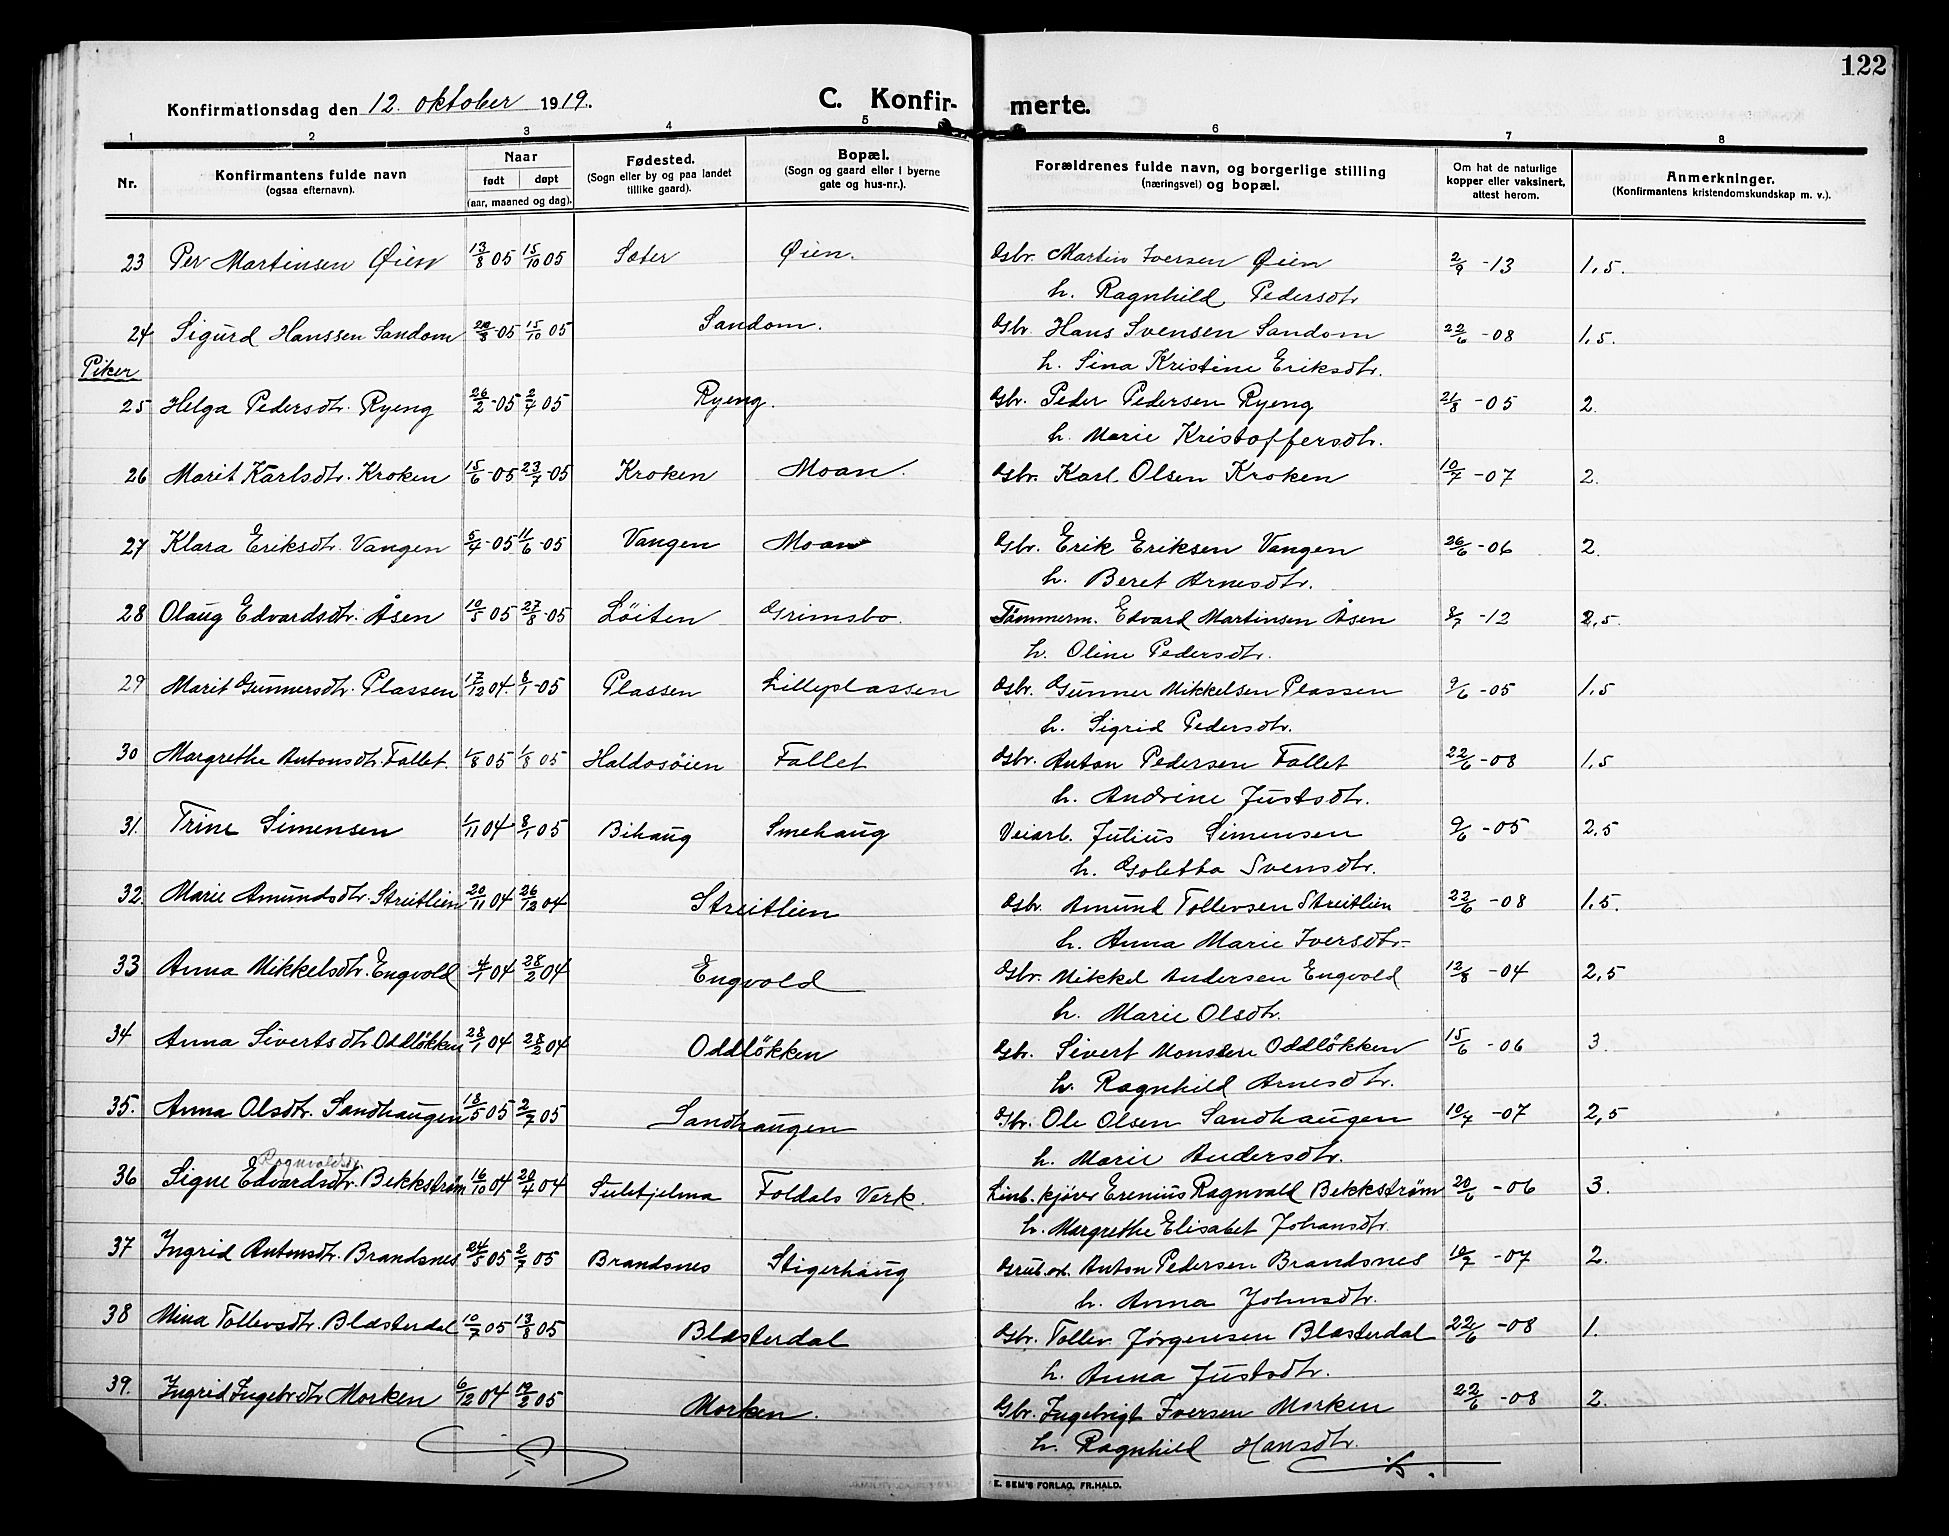 122
Konfirmationsdag den 12. oktober 1919.
C. Konfir- merte.
1 2 3 4 5 6 7 8
Nr.
Konfirmantens fulde navn
(ogsaa efternavn).
Naar
født døpt
(aar, maaned og dag).
Fødested.
(Sogn eller by og paa landet
tillike gaard).
Bopæl.
(Sogn og gaard eller i byerne
gate og hus-nr.).
Forældrenes fulde navn, og borgerlige stilling
(næringsvei) og bopæl.
Om hat de naturlige
kopper eller vaksinert,
attest herom.
Anmerkninger.
(Konfirmantens kristendomskundskap m. v.).
23 Per Martinsen Øien 13/8 05 15/10 05 Sæter Øien. Gbr. Martin Iversen Øien 2/9 -13 1,5.
h. Ragnhild Pedersdtr
24 Sigurd Hanssen Sandom /8 -05 15/10 05 Sandom. Gbr. Hans Svensen Sandom 22/6 -08 1,5.
h. Sina Kristine Eriksdtr.
Piker
25 Helga Pedersdtr. Ryeng 26/2 -05 2/4 05 Ryeng. Gbr. Peder Pedersen Ryeng 21/8 -05 2.
h. Marie Kristoffersdtr.
26 Marit Karlsdtr. Kroken 15/6 -05 23/7 -05 Kroken Moan. Gbr. Karl Olsen Kroken 10/7 -07 2.
27 Klara Eriksdtr. Vangen 5/4 -05 11/6 -05 Vangen Moan Gbr. Erik Eriksen Vangen 26/6 -06 2.
h. Beret Arnesdtr.
28 Olaug Edvardsdtr. Åsen 10/5 05 27/8 -05 Löiten Grimsbo. Tömmerm. Edvard Martinsen Åsen 8/7 -12 2,5.
h. Oline Pedersdtr.
29 Marit Gunnersdtr. Plassen 17/12 04. 8/1 -05 Plassen Lilleplassen Gbr. Gunner Mikkelsen Plassen 9/6 -05 1,5
h. Sigrid Pedersdtr.
30 Margrethe Antonsdtr. Fallet. 1/8 05 /8 05 Haldosöien Fallet Gbr. Anton Pedersen Fallet 22/6 -08 1,5
h. Andrine Justsdtr.
31. Trine Simensen 1/11 04 8/1 05 Bihaug Smehaug Veiarb. Julius Simensen 9/6 -05 2,5
h. Goletta Svensdtr.
32. Marie Amundsdtr. Streitlien 20/11 04 26/12 04 Streitlien Gbr. Amund Tollevsen Streitlien 22/6 -08 1.5.
h. Anna Marie Iversdtr.
33 Anna Mikkelsdtr. Engvold 4/1 04 28/2 04 Engvold Gbr. Mikkel Andersen Engvold 12/8 -04 2,5
h. Marie Olsdtr.
34 Anna Sivertsdtr. Oddlökken 28/1 04 28/2 04 Oddlökken Gbr. Sivert Monsen Oddlökken 15/6 -06 3.
h. Ragnhild Arnesdtr.
35. Anna Olsdtr. Sandhaugen 18/5 05 2/7 05 Sandhaugen Gbr. Ole Olsen Sandhaugen 10/7 -07 2,5
h. Marie Andersdtr.
Ragnvaldsdr.
36 Signe Edvardsdtr. Bekkstrøm 16/10 04 /4 04 Sulitjelma Foldals Verk. Linb. kjører Erenius Ragnvald Bekkstrøm 20/6 -06 3.
h. Margrethe Elisabet Johansdtr.
37 Ingrid Antonsdtr. Brandsnes. 24/5 05 2/7 05 Brandsnes Stigerhaug Grub. arb. Anton Pedersen Brandsnes 10/7 -07 2.
h. Anna Johnsdtr.
38 Mina Tollevsdtr. Blæsterdal 10/7 05 13/8 05 Blæsterdal Gbr. Tollev Jørgensen Blæsterdal 22/6 -08 1.
h. Anna Justsdtr.
39. Ingrid Ingebr.dtr Morken 6/12 04 19/2 05 Morken. Gbr. Ingebrigt Iversen Morken 22/6 -08 2.
h. Ragnhild Hansdtr.
E. SEM'S FORLAG, FR.HALD.